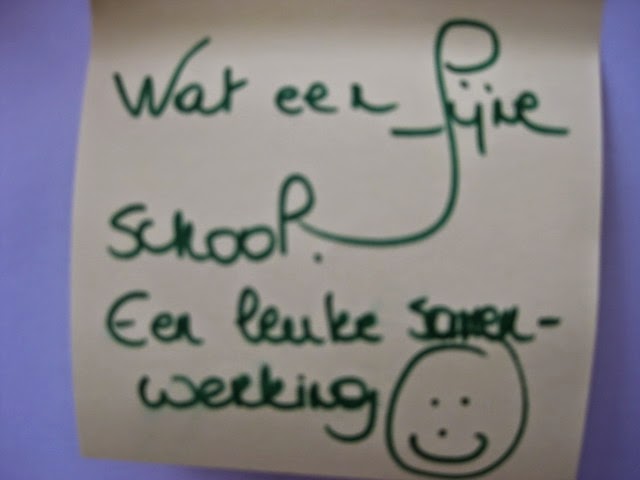 Wat een fijne
school.
Een leuke samen-
werking